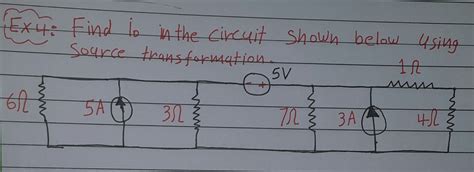 Ex4: Find io in the circuit shown below using
Source transformation.
5V
1Ω
- +
6Ω 5A 3Ω 7Ω 3A 4Ω